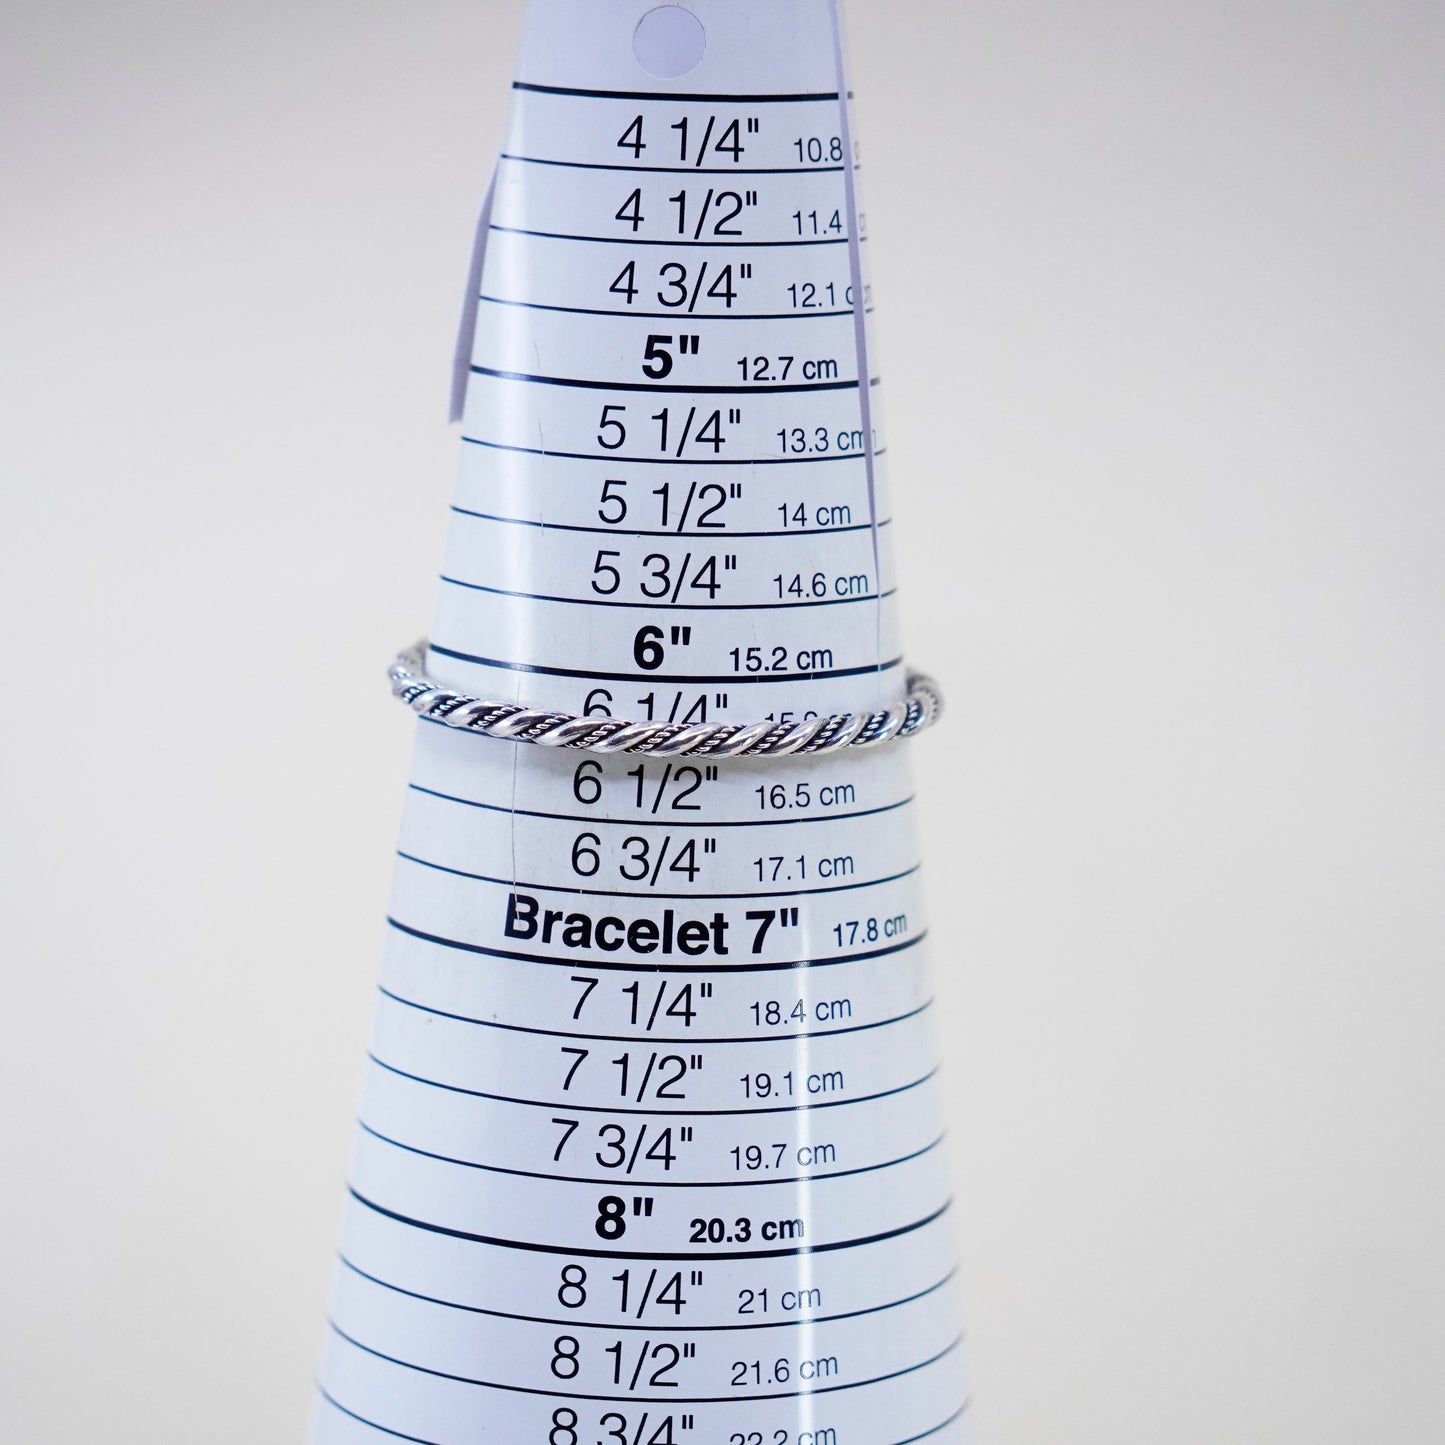 4 1/4" 10.8
4 1/2" 11.4
4 3/4" 12.1 c
5" 12.7 cm
5 1/4" 13.3 cm
5 1/2" 14 cm
5 3/4" 14.6 cm
6" 15.2 cm
6 1/4" 15.9 cm
6 1/2" 16.5 cm
6 3/4" 17.1 cm
Bracelet 7" 17.8 cm
7 1/4" 18.4 cm
7 1/2" 19.1 cm
7 3/4" 19.7 cm
8" 20.3 cm
8 1/4" 21 cm
8 1/2" 21.6 cm
8 3/4" 22.2 cm